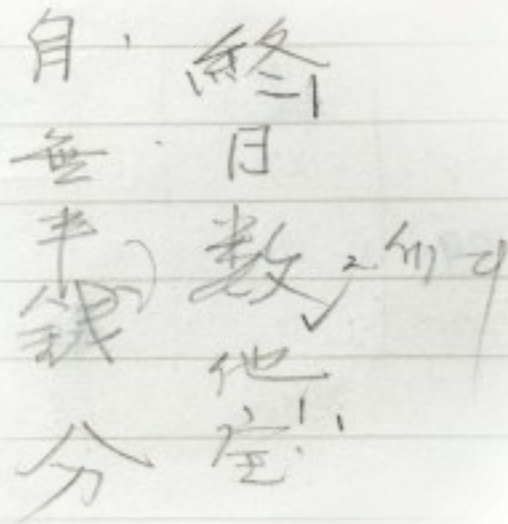 終日数他宝
自無半銭分